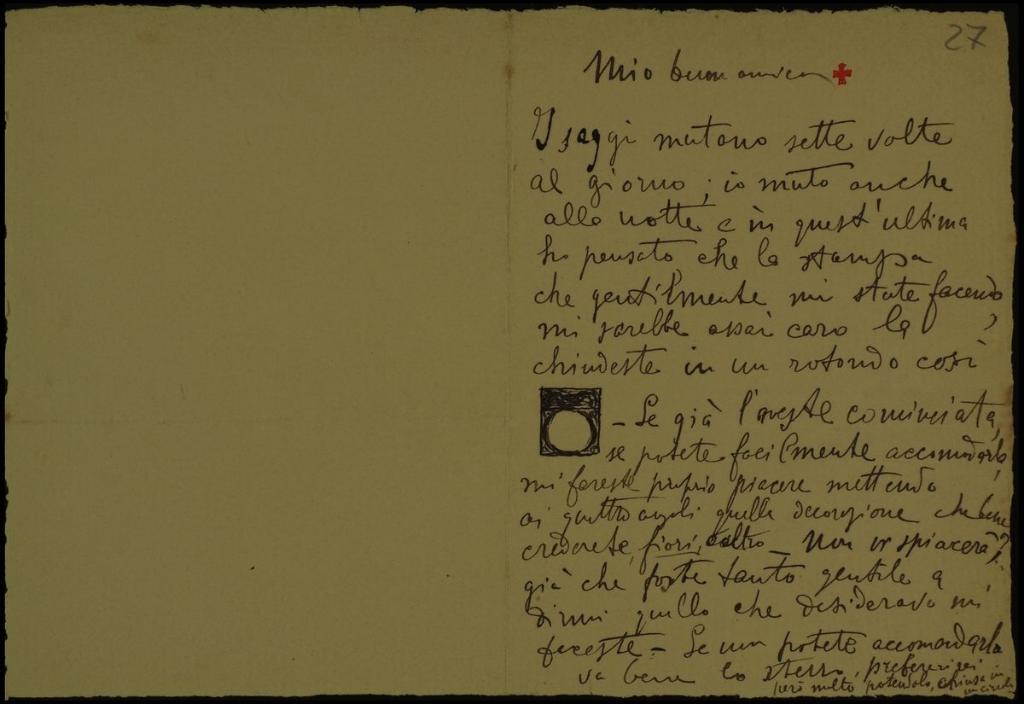 27
Mio buon amico
I saggi mutano sette volte
al giorno; io muto anche
alla notte e in quest'ultima
ho pensato che la stampa
che gentilmente mi state facendo,
mi sarebbe assai caro la
chiudeste in un rotondo così
- Se già l'aveste cominciata,
se potete facilmente accomodarla,
mi fareste proprio piacere mettendo
ai quattro angoli quella decorazione che bene
crederete, fiori, o altro - Non vi spiacerà?
già che foste tanto gentile a
dirmi quello che desideravo mi
faceste - Se non potete accomodarla
va bene lo stesso, preferirei
però molto potendolo, chiusa in
un circolo